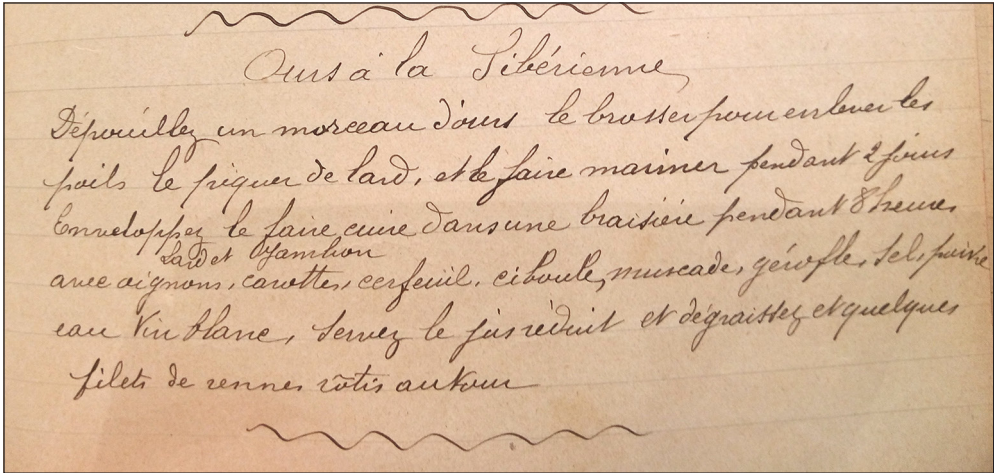 Ours à la Sibérienne
Dépouillez un morceau d'ours le brosser pour enlever les
poils le piquer de lard, et le faire mariner pendant 2 jours
Enveloppez le faire cuire dans une braisière pendant 8 heures
Lard et Jambon
avec oignons, carottes, cerfeuil, ciboule, muscade, gérofle, sel, poivre
eau vin blanc, servez le jus réduit et dégraissez et quelques
filets de rennes rôtis autour